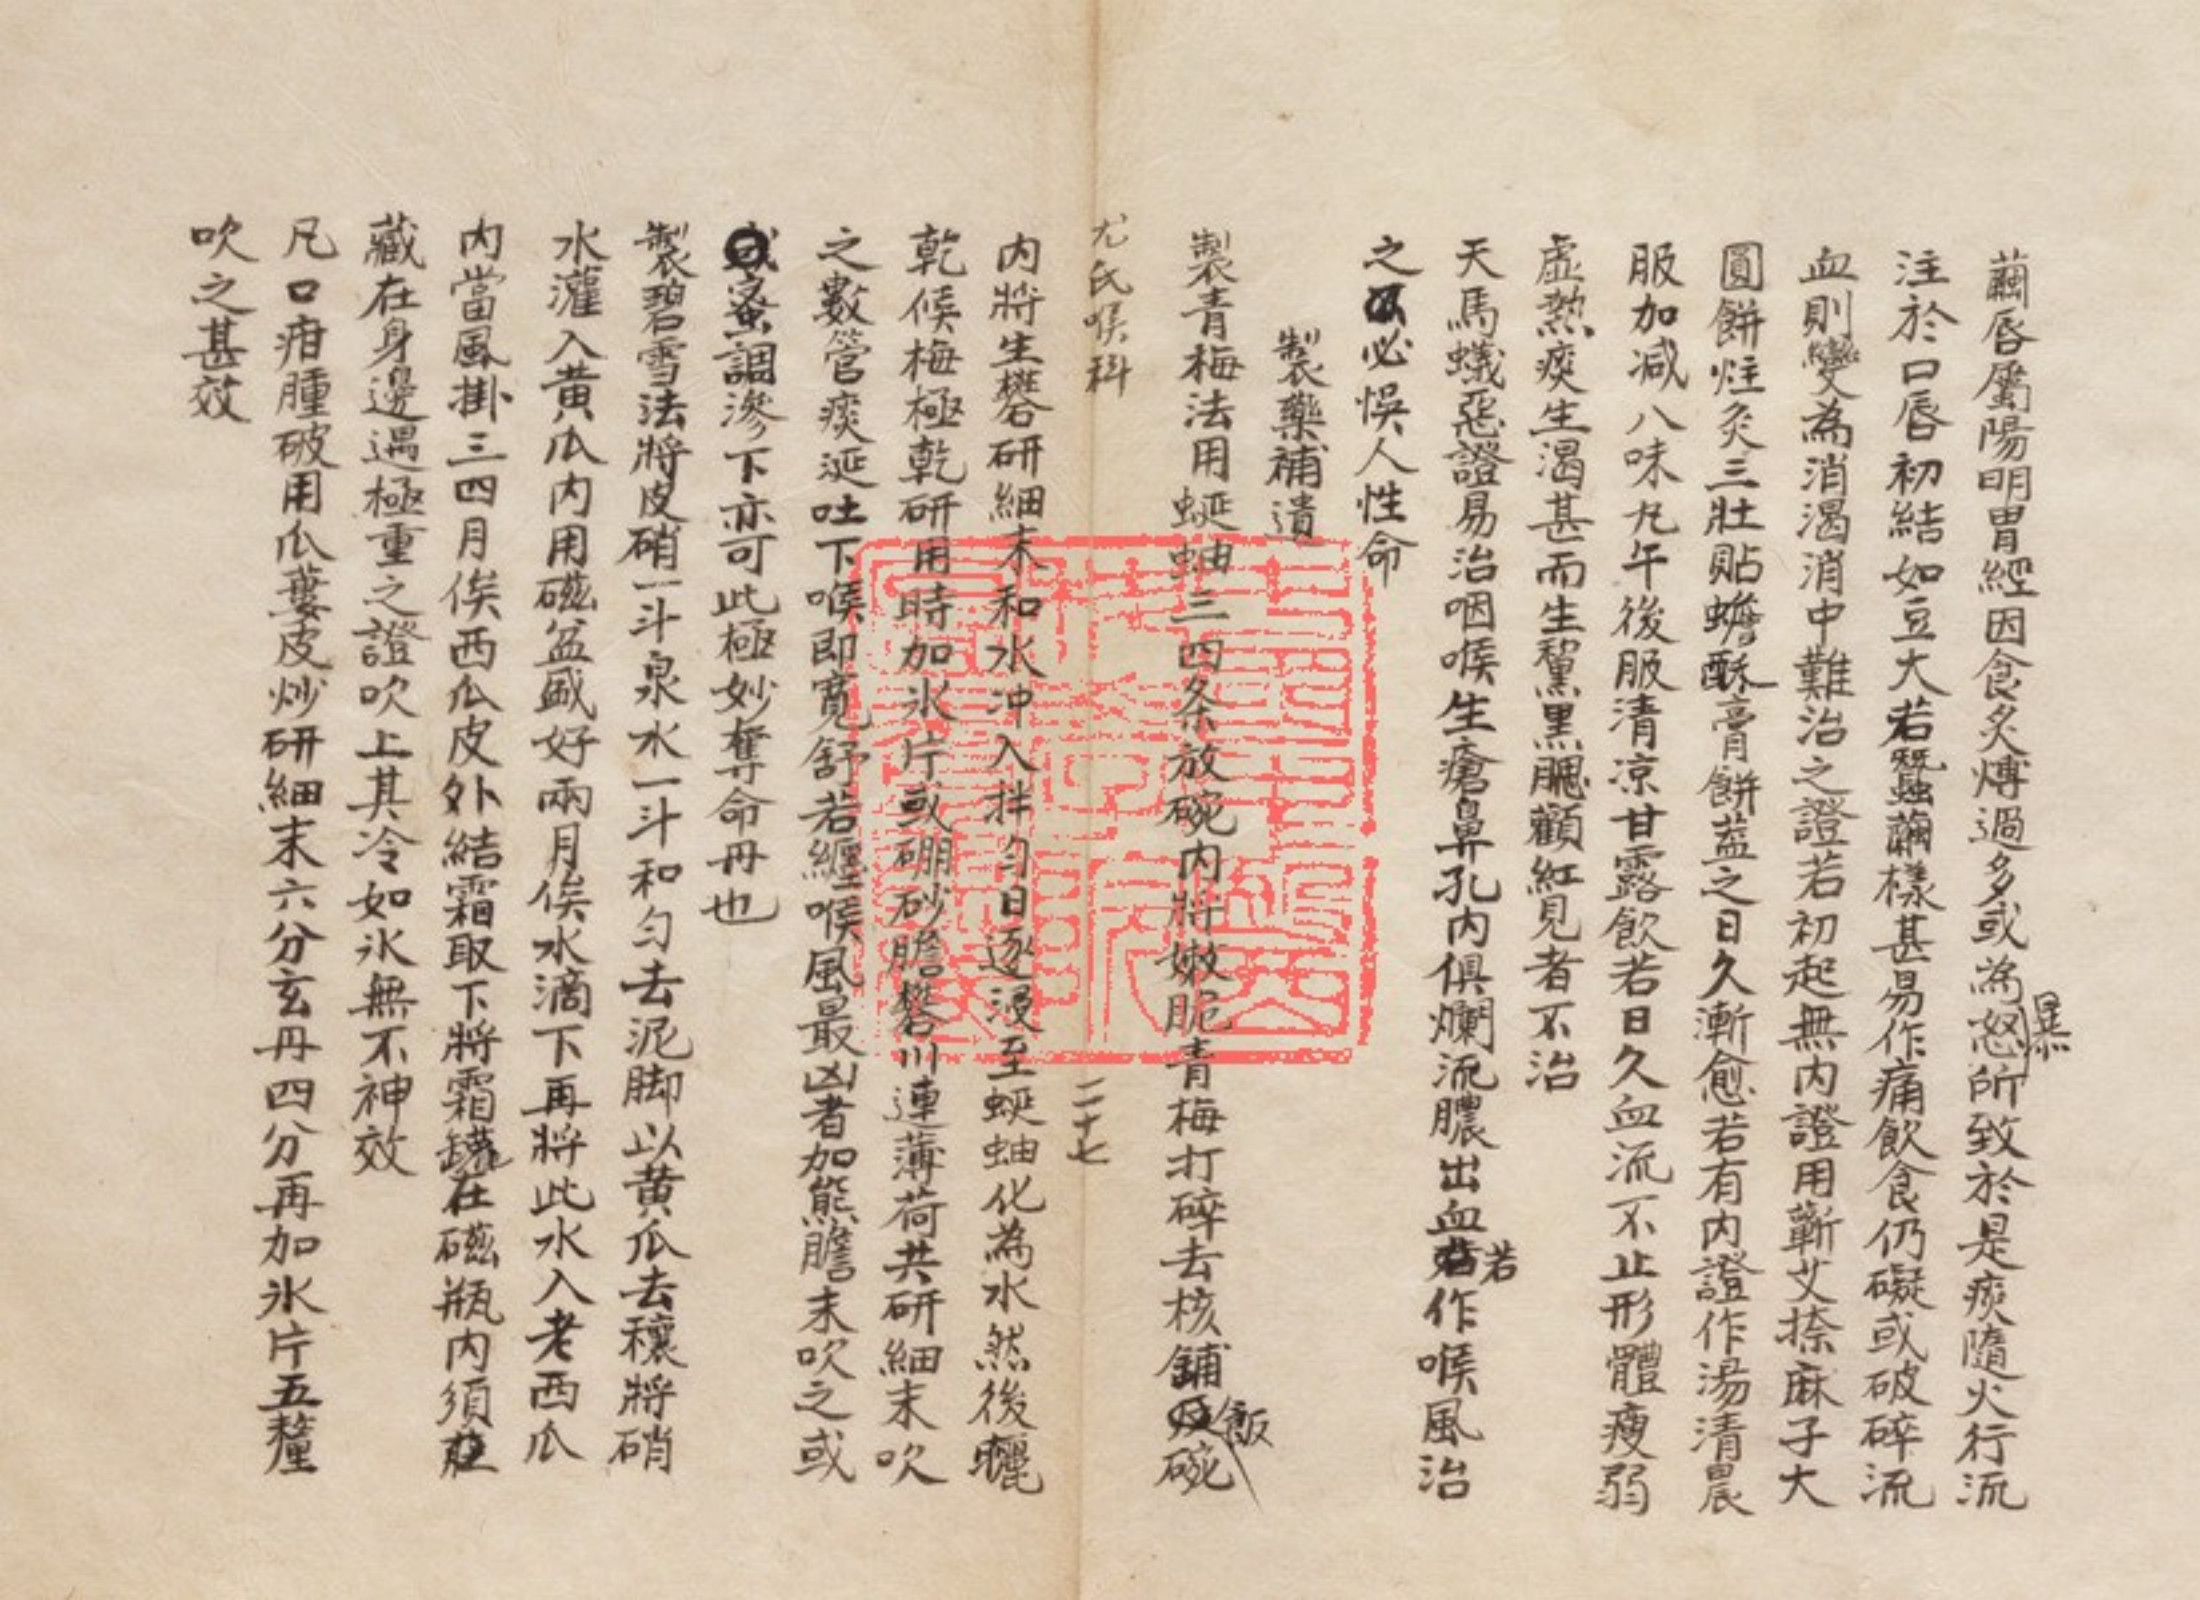 繭唇屬陽明胃經因食炙煿過多或為暴怒所致於是痰隨火行流
注於口唇初結如豆大若蠶繭樣甚易作痛飲食仍礙或破碎流
血則變為消渴消中難治之證若初起無內證用蘄艾捺麻子大
圓餅炷灸三壯貼蟾酥膏餅葢之日久漸愈若有內證作湯清晨
服加減八味丸午後服清凉甘露飲若日久血流不止形體瘦弱
虛熱痰生渴甚而生黧黑腮顴紅見者不治
天馬蟻惡證易治咽喉生瘡鼻孔內俱爛流膿出血若作喉風治
之必悞人性命
製藥補遺
製青梅法用蜒蚰三四条放碗內將嫩脆青梅打碎去核鋪飯碗
尤氏喉科 二十七
內將生礬研細末和水冲入拌勻日逐浸至蜒蚰化為水然後曬
乾候梅極乾研用時加氷片或硼砂膽礬川連薄荷共研細末吹
之數管痰涎吐下喉即寬舒若纏喉風最凶者加熊膽末吹之或
蜜調滲下亦可此極妙奪命丹也
製碧雪法將皮硝一斗泉水一斗和勻去泥脚以黃瓜去穰將硝
水灌入黃瓜內用磁盆盛好兩月俟水滴下再將此水入老西瓜
內當風掛三四月俟西瓜皮外結霜取下將霜罐在磁瓶內須
藏在身邊遇極重之證吹上其冷如氷無不神效
凡口疳腫破用瓜蔞皮炒研細末六分玄丹四分再加氷片五釐
吹之甚效